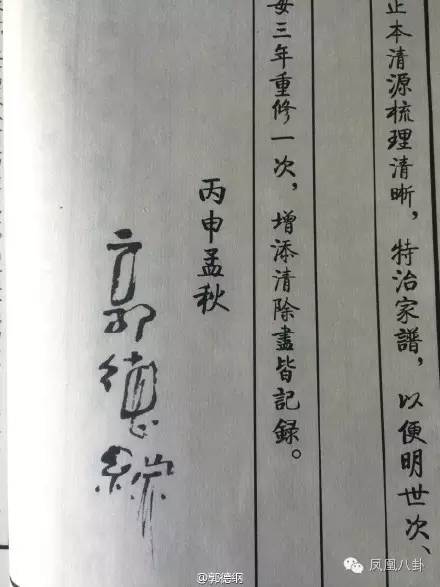 正本清源梳理清晰，特治家譜，以便明世次、
每三年重修一次，增添清除盡皆記録。
丙申孟秋
郭德綱
@郭德纲
凤凰八卦